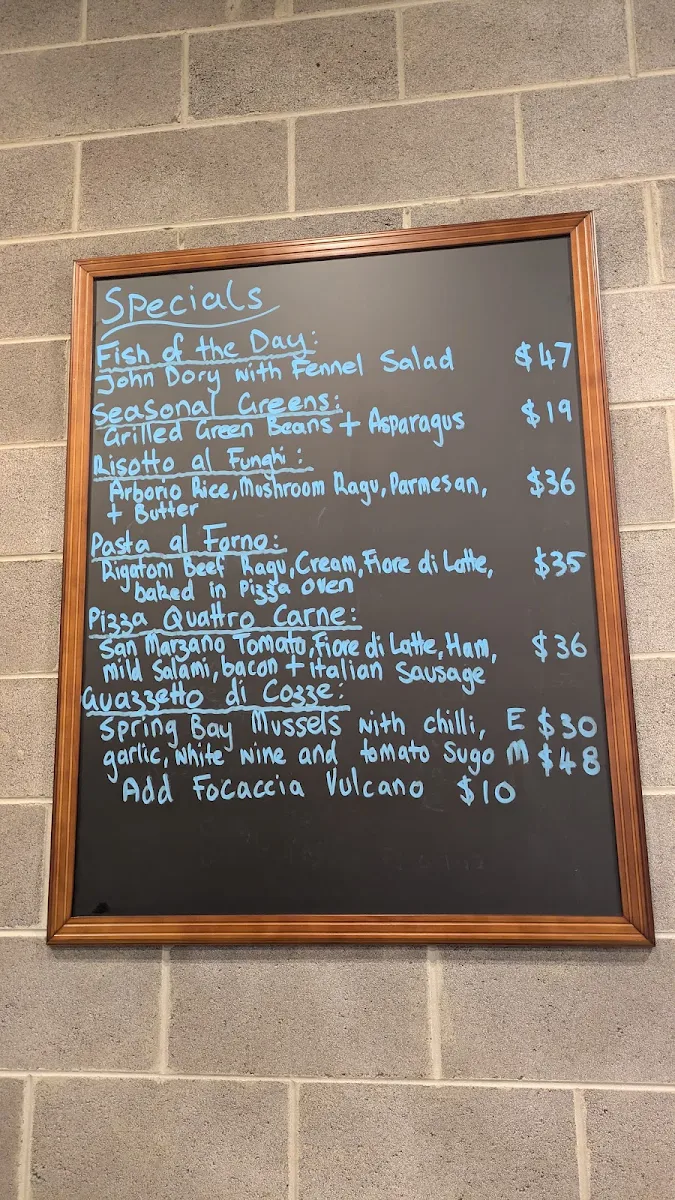 Specials
Fish of the Day:
John Dory with Fennel Salad $47
Seasonal Greens:
Grilled Green Beans + Asparagus $19
Risotto al Funghi:
Arborio Rice, Mushroom Ragu, Parmesan, $36
+ Butter
Pasta al Forno:
Rigatoni Beef Ragu, Cream, Fiore di Latte, $35
baked in Pizza oven
Pizza Quattro Carne:
San Marzano Tomato, Fiore di Latte, Ham, $36
mild Salami, bacon + italian Sausage
Guazzetto di Cozze:
Spring Bay Mussels with chilli, E $30
garlic, white wine and tomato sugo M $48
Add Focaccia Vulcano $10